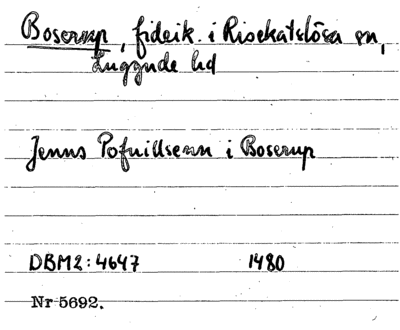 Boserup, fideik. i Risekatslösa sn,
Luggude hd
Jenns Pofuillsenn i Boserup
DBM2:4647 1480
Nr 5692.